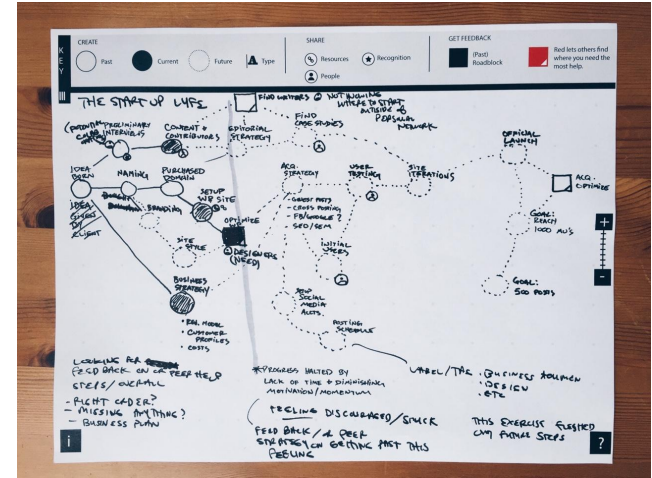 KEY
CREATE
Past
Current
Future
A Type
SHARE
Resources
Recognition
People
GET FEEDBACK
(Past) Roadblock
Red lets others find
where you need the
most help.
THE START UP LYFE
FIND WRITERS
NOT KNOWING
WHERE TO START
OUTSIDE OF
PERSONAL
NETWORK
(POTENTIAL
PRELIMINARY
INTERVIEWS
CONTENT +
CONTRIBUTORS
EDITORIAL
STRATEGY
FIND
CASE STUDIES
OFFICIAL
LAUNCH
IDEA
BORN
NAMING
PURCHASED
DOMAIN
ACQ.
STRATEGY
USER
TESTING
SITE
ITRATIONS
ACQ.
OPTIMIZE
IDEA
GIVEN
BY
CLIENT
BRANDING
SETUP
WB SITE
OPTIMIZE
- GUEST POSTS
- CROSS POSTING
- FB/GOOGLE?
- SEO/SEM
GOAL:
REACH
1000 AU'S
SITE
STYLE
DESIGNERS
(NEED)
INITIAL
USERS
BUSINESS
STRATEGY
SETUP
SOCIAL
MEDIA
ACCTS
GOAL:
500 POSTS
• REV. MODEL
• CUSTOMER
PROFILES
• COSTS
POSTING
SCHEDULE
LOOKING FOR
FEED BACK ON OR PEER HELP
STEPS/OVERALL
- RIGHT ORDER?
- MISSING ANYTHING?
- BUSINESS PLAN
*PROGRESS HALTED BY
LACK OF TIME + DIMINISHING
MOTIVATION/MOMENTUM
FEELING DISCOURAGED/STUCK
FEED BACK/OR PEER
STRATEGY ON GETTING PAST THIS
FEELING
LABEL/TAG
• BUSINESS
• DESIGN
• ETC
THIS EXERCISE FLESHED
OUT FUTURE STEPS
i
?